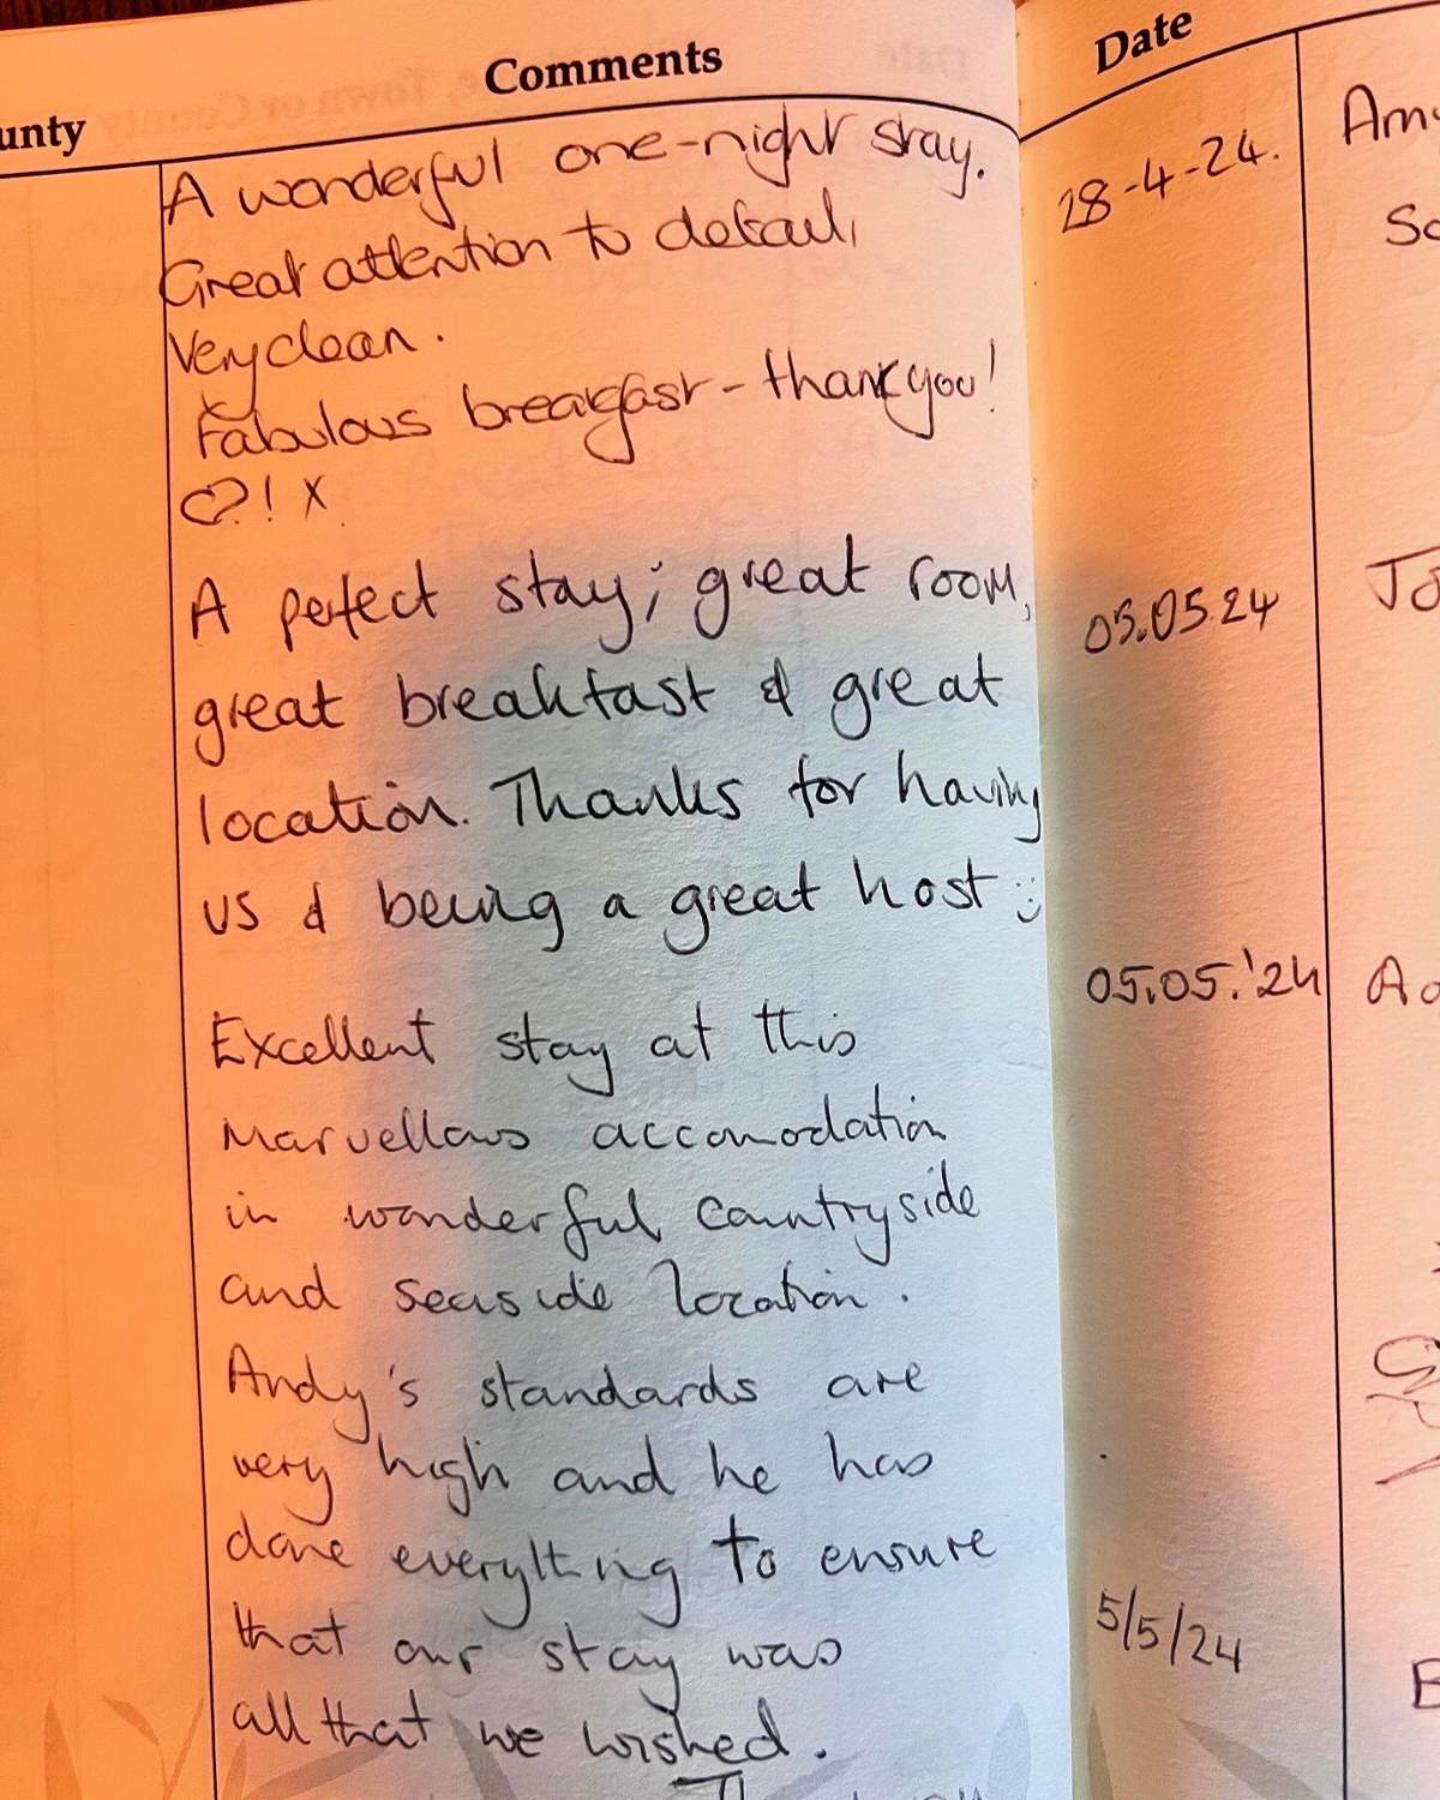 Comments
unty
A wonderful one-night stay.
Great attention to detail,
Very clean.
Fabulous breakfast - thank you!
♡! x
A perfect stay; great room,
great breakfast & great
location. Thanks for having
us & being a great host :)
Excellent stay at this
marvellous accomodation
in wonderful countryside
and seaside location.
Andy's standards are
very high and he has
done everything to ensure
that our stay was
all that we wished.
Date
28-4-24.
05.05.24
05.05.'24
5/5/24
Amy
So
Jo
Ad
E